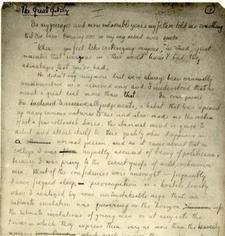 The Great Gatsby
In my younger and more vulnerable years my father told me something
that I've been turning over in my mind ever since
When you feel like criticizing anyone, he said, "just
remember that everyone in this world hasn't had the
advantages that you've had."
He didn't say any more but we've always been unusually
communicative in a reserved way and I understood that he
meant a great deal more than that. In consequence
I'm inclined to reserve all judgements, a habit that has opened up
many curious natures to me and also made me the victim
of not a few veteran bores. The abnormal mind is quick to
detect and attach itself to this quality when it appears in
a normal person, and so it came about that in
college I was unjustly accused of being a politician,
because I was privy to the secret griefs of wild unknown
men. Most of the confidences were unsought - frequently
I have feigned sleep, preoccupation or a hostile levity
when I realized by some unmistakable sign that an
intimate revelation was quivering on the horizon
the intimate revelations of young men or at any rate the
terms in which they express them vary no more than the heavenly